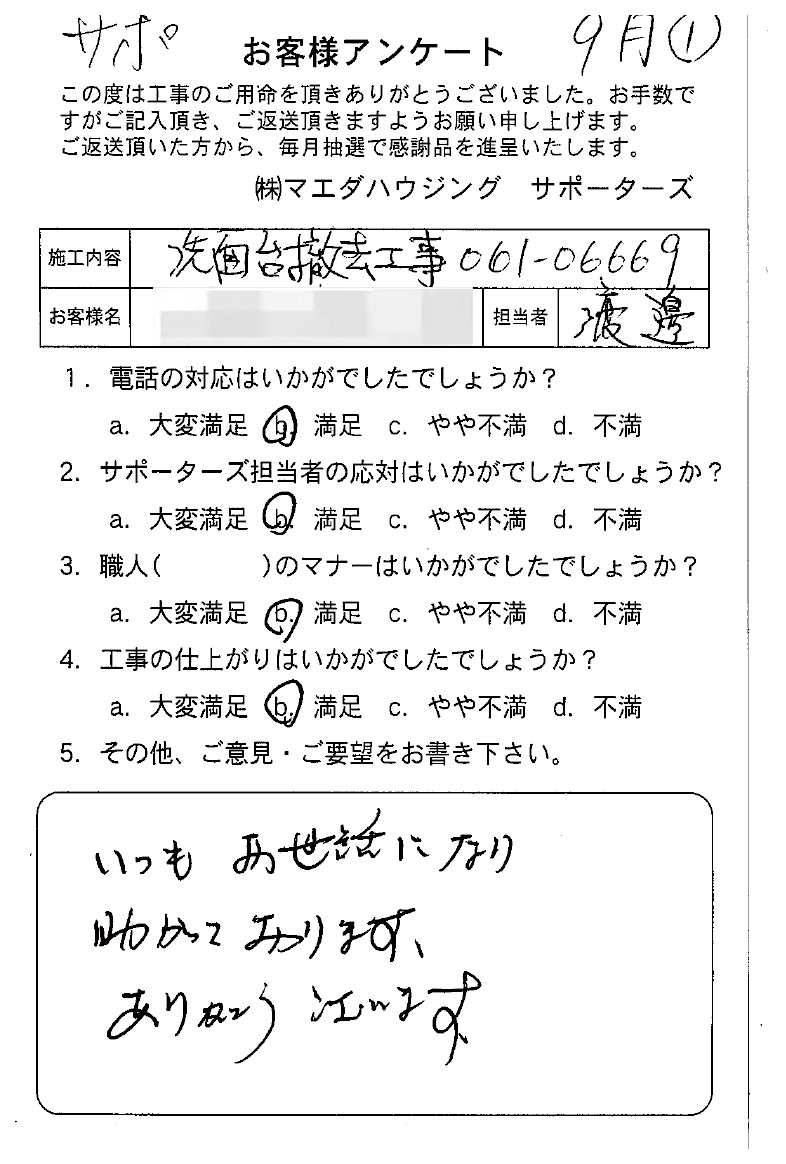 サポ お客様アンケート 9月①
この度は工事のご用命を頂きありがとうございました。お手数で
すがご記入頂き、ご返送頂きますようお願い申し上げます。
ご返送頂いた方から、毎月抽選で感謝品を進呈いたします。
㈱マエダハウジング サポーターズ
施工内容 洗面台撤去工事 061-06669
お客様名 担当者 渡邊
1. 電話の対応はいかがでしたでしょうか?
a. 大変満足 b. 満足 c. やや不満 d. 不満
2. サポーターズ担当者の応対はいかがでしたでしょうか?
a. 大変満足 b. 満足 c. やや不満 d. 不満
3. 職人( )のマナーはいかがでしたでしょうか?
a. 大変満足 b. 満足 c. やや不満 d. 不満
4. 工事の仕上がりはいかがでしたでしょうか?
a. 大変満足 b. 満足 c. やや不満 d. 不満
5. その他、ご意見・ご要望をお書き下さい。
いつも お世話になり
助かって おります、
ありがとう